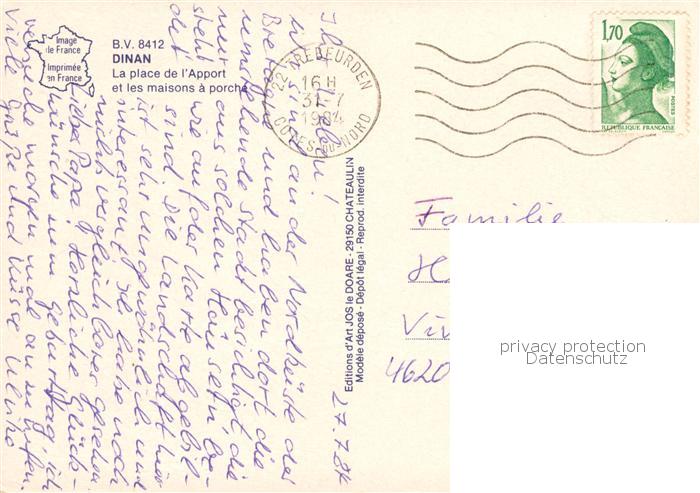 Image
de France
Imprimée
en France
B.V. 8412
DINAN
La place de l'Apport
et les maisons à porche
22 TREBEURDEN
16 H
31-7
1984
COTES DU NORD
1,70
POSTES
REPUBLIQUE FRANÇAISE
Editions d'Art JOS le DOARE - 29150 CHATEAULIN
Modèle déposé - Dépôt légal - Reprod. interdite
27.7.84
Ihr Lieben!
wir sind an der Nordküste der
Bretagne und haben dort die
umstehende Stadt besichtigt, die
nur aus solchen Häusern be-
steht wie auf der Karte abgebil-
det sind. Die Landschaft hier
ist sehr ungewöhnlich und
interessant, ich habe noch
nicht vergleichbares gesehen
Lieber Papa! Herzliche Glück-
wünsche zum Geburtstag, ich
versuche morgen mal anzurufen.
Viele Grüße und Küsse Ulrike
Familie
4620
privacy protection
Datenschutz